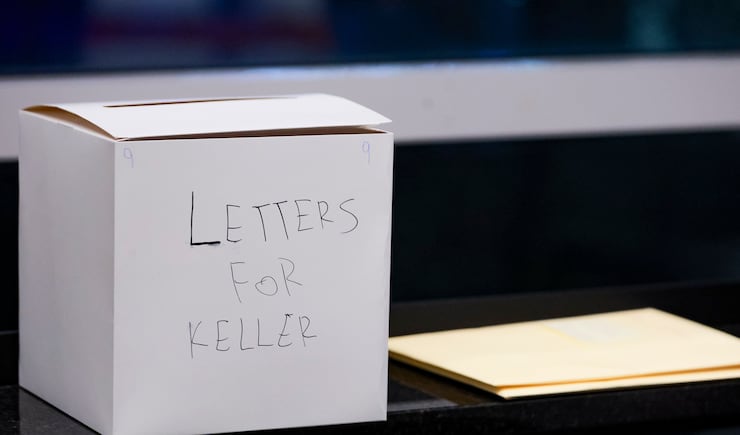 9 9
LETTERS
FOR
KELLER